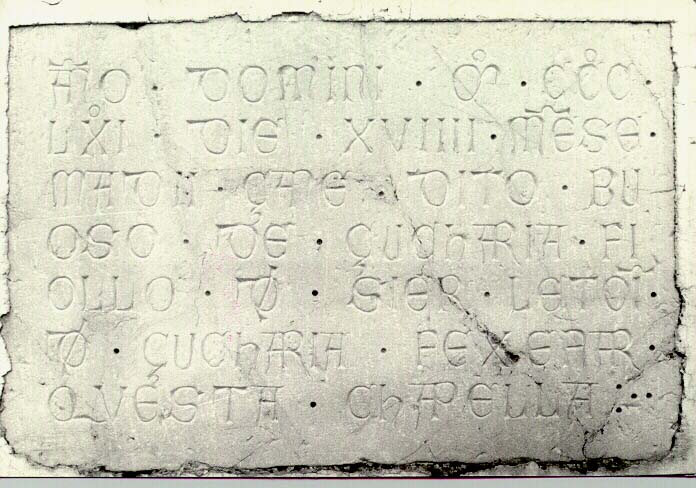 AN̄O · DOMINI · Mº · CCºC ·
LXºI · DIE · XVIIII · M̄ESE ·
MADII · ÇANE · DITO · BU
OSO · DE · ÇUCHARIA · FI
OLLO · Đ · SIER · LETOĪ ·
Đ · ÇUCHARIA · FEXE FAR ·
QVESTA · CHAPELLA